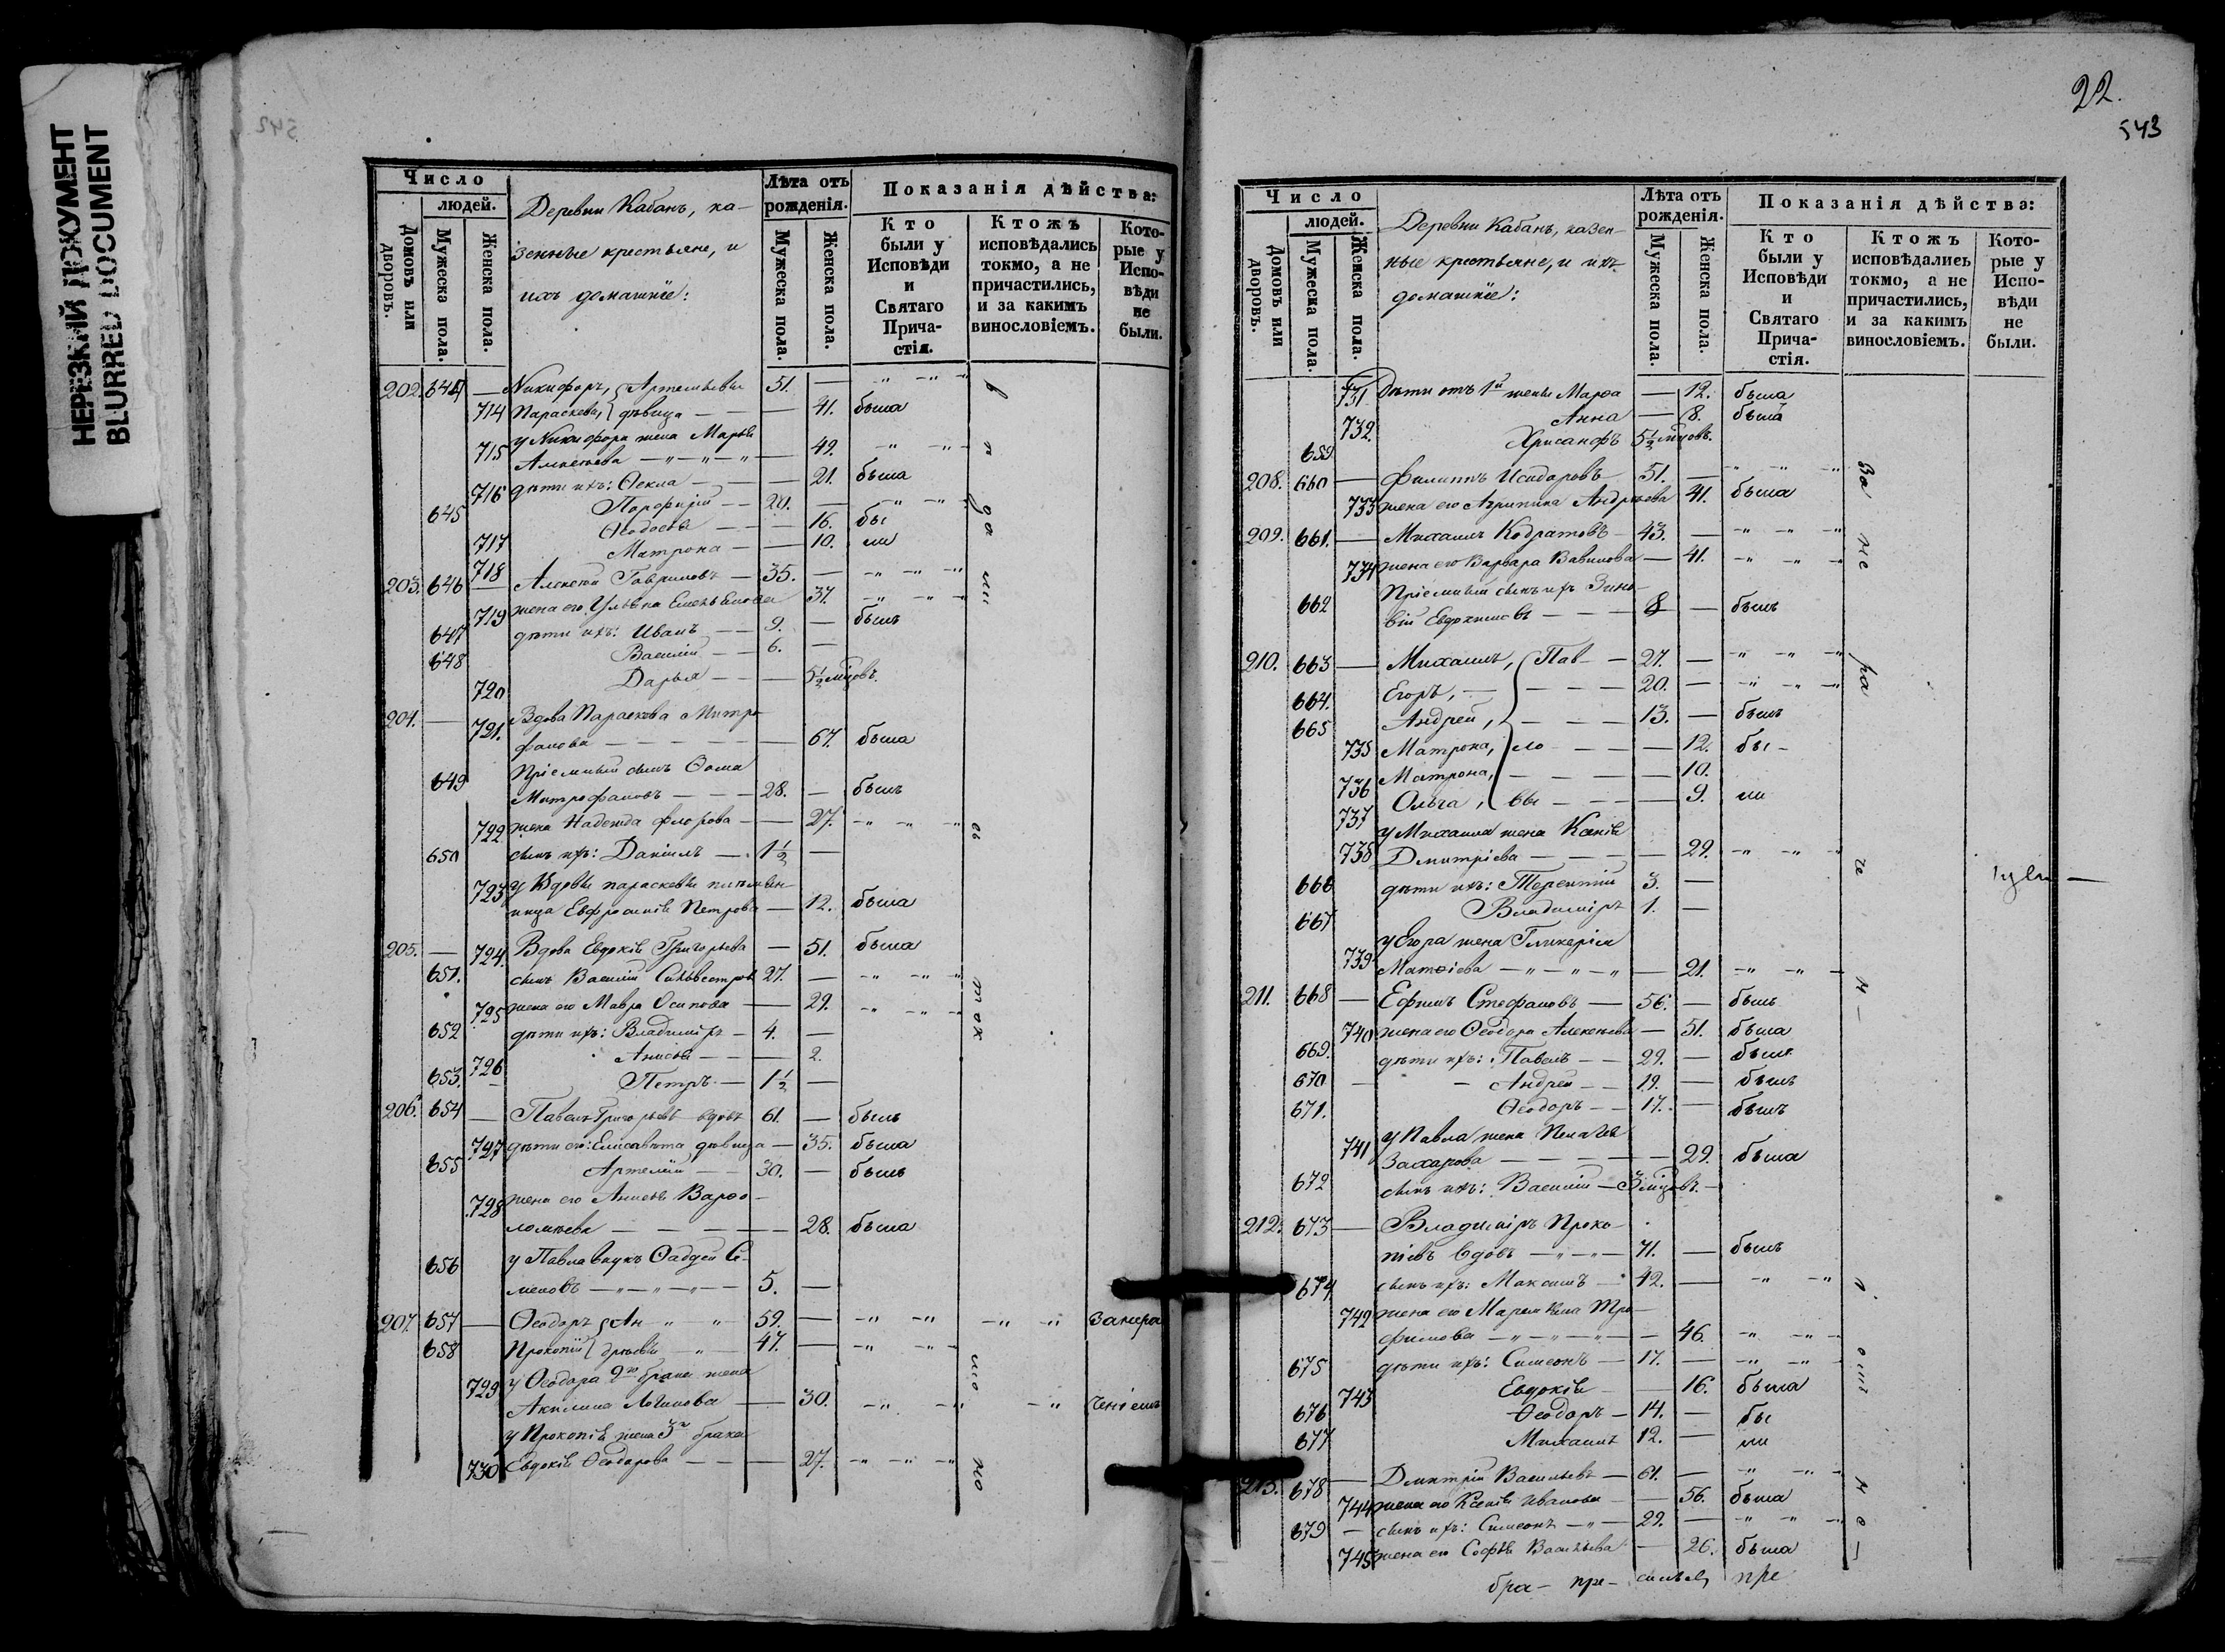 НЕРЕЗКИЙ ДОКУМЕНТ
BLURRED DOCUMENT
542
Число
людей.
Домовъ или дворовъ.
Мужеска пола.
Женска пола.
Деревни Кабанъ, ка-
зенные крестьяне, и
ихъ домашніе:
Лѣта отъ рожденія.
Мужеска пола.
Женска пола.
Показанія дѣйства:
Кто были у Исповѣди и Святаго Прича-стія.
Ктожъ исповѣдались токмо, а не причастились, и за какимъ винословіемъ.
Кото-рые у Испо-вѣди не были.
202. 644 — Никифоръ, Артемьевы 51. —
714 Параскева, дѣвица — — 41. была
715 у Никифора жена Марья
Алексѣева — 49.
716 дѣти ихъ: Ѳекла — — 21. была
645 Порфирій — 20. —
717 Ѳеодосья — — 16. бы
718 Матрона — — 10. ли
203. 646 — Алексѣй Гавриловъ — 35. —
719 жена его Ульяна Емельянова 37.
647 дѣти ихъ: Иванъ — 9. — былъ
648 Василій — 6. —
720 Дарья — — 5½ мцовъ.
204. — 721. Вдова Параскева Митро-
фанова — 67. была
649 Пріемный сынъ Ѳома
Митрофановъ — 28. — былъ
722 жена Надежда Флорова — 27.
650 сынъ ихъ: Даніилъ — 1½ —
723 У Вдовы Параскевы питомен-
ница Евфросинія Петрова — 12. была
205. — 724. Вдова Евдокія Григорьева — 51. была
651. сынъ Василій Сильвестровъ 27. —
725 жена его Мавра Осипова — 29.
652 дѣти ихъ: Владиміръ — 4. —
726 Анисья — — 2.
653. Петръ — 1½ —
206. 654 — Павелъ Григорьевъ вдовъ 61. — былъ
727 дѣти его: Елисавета дѣвица — 35. была
655 Артемій — 30. — былъ
728 жена его Анисья Варѳо-
ломѣева — 28. была
656 у Павла внукъ Ѳаддей Се-
меновъ — 5. —
207. 657 — Ѳеодоръ Ан 59. —
658 Прокопій дреевы 47. —
729 у Ѳеодора 2го брака жена
Акилина Логинова — 30.
у Прокопія жена 3го брака
730 Евдокія Ѳеодорова — 27.
22.
543
Число
людей.
Домовъ или дворовъ.
Мужеска пола
Женска пола.
Деревни Кабанъ, казен-
ные крестьяне, и ихъ
домашніе:
Лѣта отъ рожденія.
Мужеска пола.
Женска пола.
Показанія дѣйства:
Кто были у Исповѣди и Святаго Прича-стія.
Ктожъ исповѣдались токмо, а не причастились, и за какимъ винословіемъ.
Кото-рые у Испо-вѣди не были.
731 Дѣти отъ 1й жены Марѳа — 12. была
732. Анна — 8. была
659 Хрисанфъ 5½ мцовъ.
208. 660 — Филиппъ Исидоровъ 51. —
733 жена его Агрипина Андреева 41. была
209. 661. — Михаилъ Кодратовъ 43. —
734 жена его Варвара Вавилова — 41.
662 Пріемный сынъ ихъ Зино-
вій Евдокимовъ — 8 — былъ
210. 663 — Михаилъ, Пав — 27. —
664. Егоръ, — 20. —
665 Андрей, — 13. — былъ
735 Матрона, ло — 12. бы-
736 Матрона, — 10.
737 Ольга, вы — 9. ли
738 у Михаила жена Ксенія
Дмитріева — 29.
666 дѣти ихъ: Терентій 3. —
667 Владиміръ 1. —
739 у Егора жена Гликерія
Матѳіева — 21.
211. 668 — Ефимъ Стефановъ — 56. — былъ
740 жена его Ѳеодора Алексѣева — 51. была
669. дѣти ихъ: Павелъ — 29. — былъ
670 — Андрей — 19. — былъ
671. Ѳеодоръ — 17. — былъ
741 у Павла жена Пелагія
Захарова — 29. была
672 сынъ ихъ: Василій — 3 мцовъ.
212. 673 — Владиміръ Проко-
піевъ вдовъ — 71. — былъ
674 сынъ ихъ: Максимъ — 42. —
742 жена его Марья Тро-
фимова — 46.
675 дѣти ихъ: Симеонъ — 17. —
743 Евдокія — 16. была
676 Ѳеодоръ — 14. — бы
677 Михаилъ 12. — ли
213. 678 — Дмитрій Васильевъ — 61. —
744 жена его Ксенія Иванова — 56. была
679 — сынъ ихъ: Симеонъ — 29. —
745 жена его Софья Васильева — 26. была